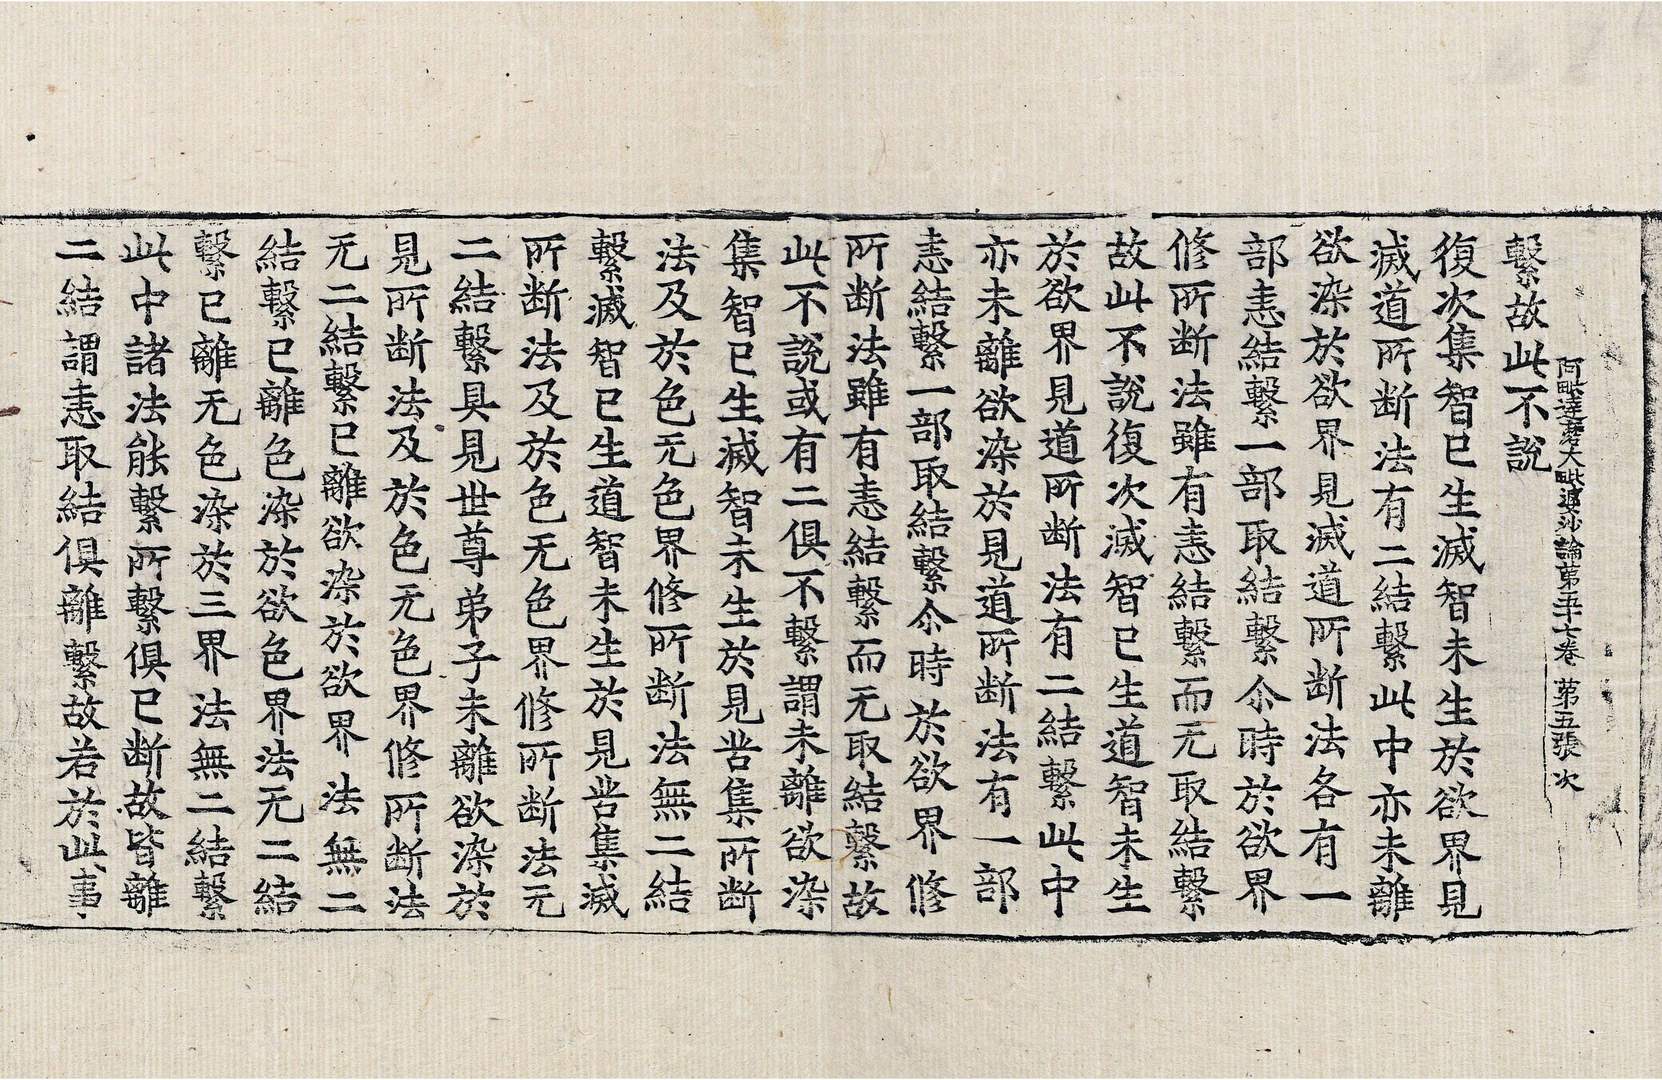 阿毗達磨大毗婆沙論第五十七卷　第五張　次
繫故此不說
復次集智已生滅智未生於欲界見
滅道所断法有二結繫此中亦未離
欲染於欲界見滅道所断法各有一
部恚結繫一部取結繫尒時於欲界
修所断法雖有恚結繫而无取結繫
故此不說復次滅智已生道智未生
於欲界見道所断法有二結繫此中
亦未離欲染於見道所断法有一部
恚結繫一部取結繫尒時於欲界修
所断法雖有恚結繫而无取結繫故
此不說或有二俱不繫謂未離欲染
集智已生滅智未生於見苦集所断
法及於色无色界修所断法無二結
繫滅智已生道智未生於見苦集滅
所断法及於色无色界修所断法无
二結繫具見世尊弟子未離欲染於
見所断法及於色无色界修所断法
无二結繫已離欲染於欲界法無二
結繫已離色染於欲色界法无二結
繫已離无色染於三界法無二結繫
此中諸法能繫所繫俱已断故皆離
二結謂恚取結俱離繫故若於此事